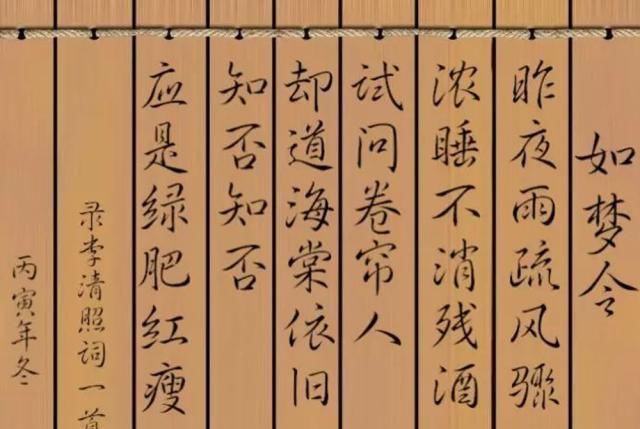 如梦令
昨夜雨疏风骤
浓睡不消残酒
试问卷帘人
却道海棠依旧
知否知否
应是绿肥红瘦
录李清照词一首
丙寅年冬